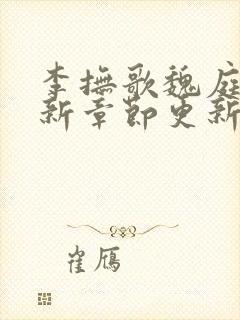 李撫歌魏庭
新章節更新
崔鴈